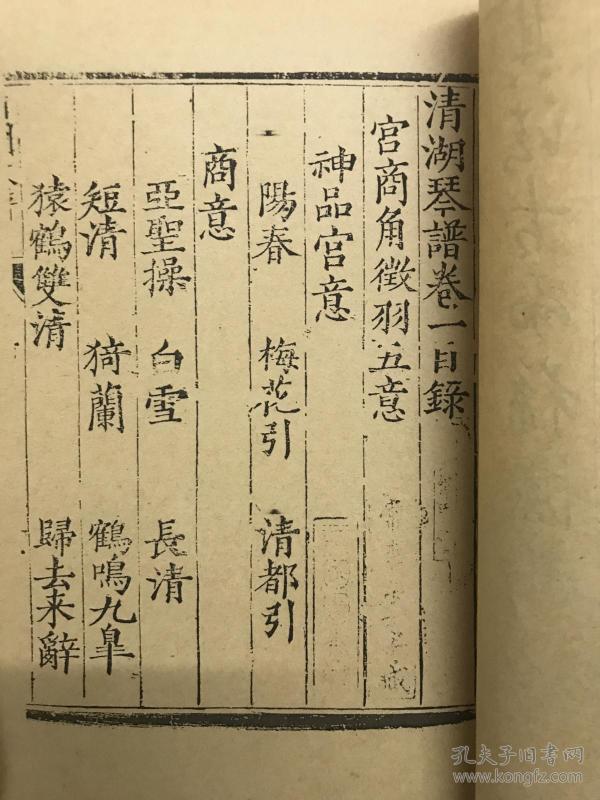 清湖琴譜卷一目錄
宮商角徵羽五意
神品宮意
陽春 梅花引 清都引
商意
亞聖操 白雪 長清
短清 猗蘭 鶴鳴九臯
猿鶴雙清 歸去来辭
孔夫子旧书网
www.kongfz.com